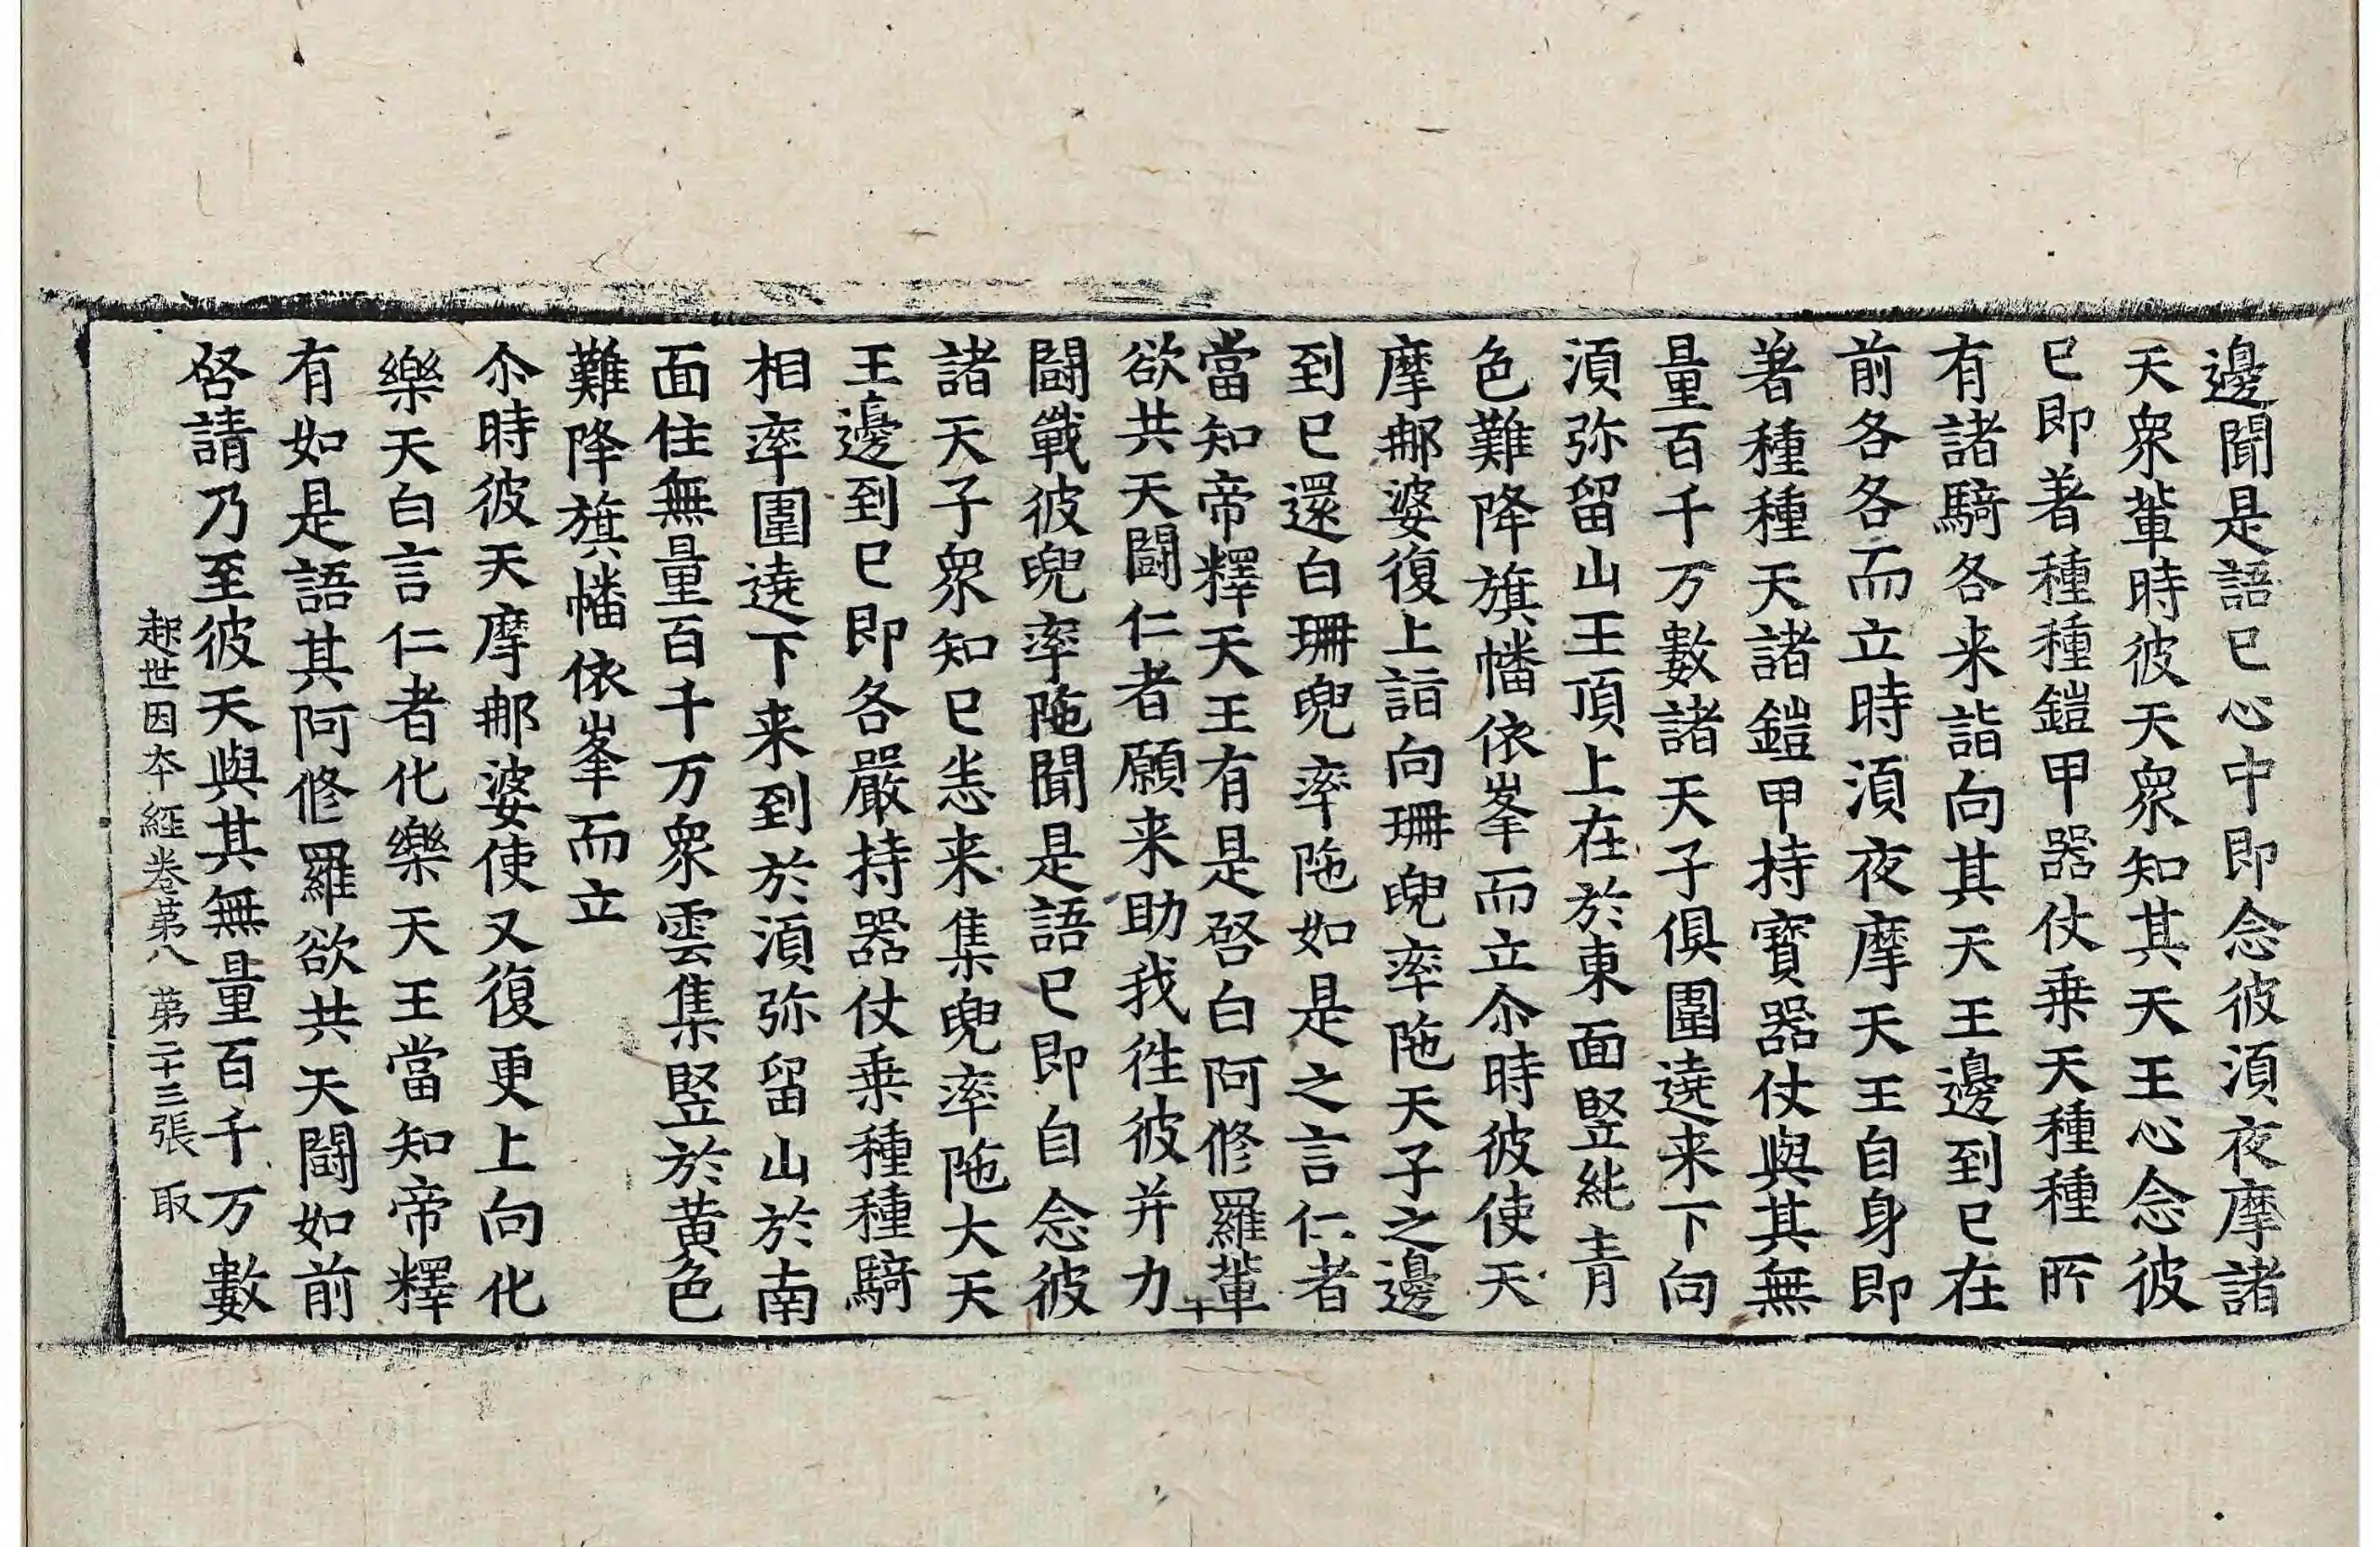 邊聞是語已心中即念彼湏夜摩諸
天衆軰時彼天衆知其天王心念彼
已即著種種鎧甲器仗乗天種種所
有諸騎各来詣向其天王邊到已在
前各各而立時湏夜摩天王自身即
著種種天諸鎧甲持寳器仗與其無
量百千万數諸天子俱圍遶来下向
湏弥留山王頂上在於東面竪純青
色難降旗幡依峯而立尒時彼使天
摩那婆復上詣向珊兜率陁天子之邊
到已還白珊兜率陁如是之言仁者
當知帝釋天王有是啓白阿修羅軰
欲共天鬪仁者願来助我徃彼并力
鬪戰彼兜率陁聞是語已即自念彼
諸天子衆知已恚来集兜率陁大天
王邊到已即各嚴持器仗乗種種騎
相率圍遶下来到於湏弥留山於南
面住無量百千万衆雲集竪於黄色
難降旗幡依峯而立
尒時彼天摩那婆使又復更上向化
樂天白言仁者化樂天王當知帝釋
有如是語其阿修羅欲共天鬪如前
啓請乃至彼天與其無量百千万數
起世因本經卷第八　第二十三張　取